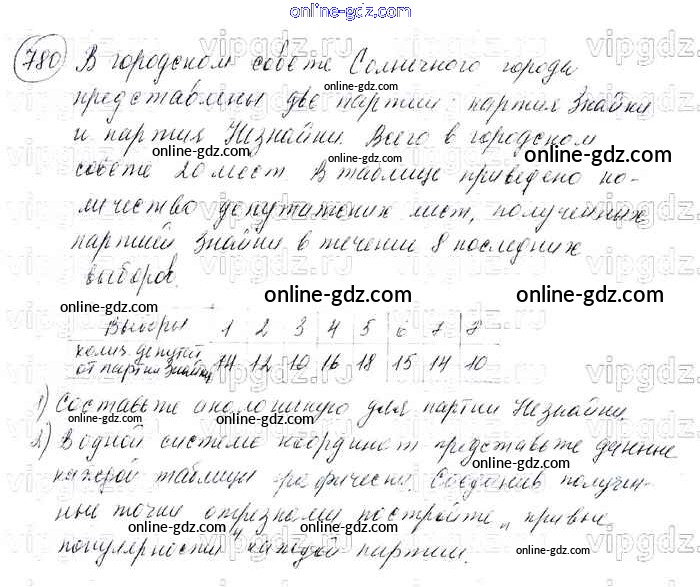 online-gdz.com
780 В городском совете Солнечного города
online-gdz.com
представлены две партии: партия Знайки
и партия Незнайки. Всего в городском
online-gdz.com online-gdz.com
совете 20 мест. В таблице приведено ко-
личество депутатских мест, полученных
партией Знайки в течении 8 последних
выборов.
online-gdz.com online-gdz.com online-gdz.com
Выборы 1 2 3 4 5 6 7 8
колич. депутат.
от партии Знайки 14 12 10 16 18 15 14 10
1) Составьте аналогичную для партии Незнайки.
online-gdz.com online-gdz.com
2) В одной системе координат представьте данные
каждой таблицы графически. Соединив получен-
online-gdz.com online-gdz.com online-gdz.com
ные точки отрезками постройте „кривые
популярности" каждой партии.
online-gdz.com online-gdz.com